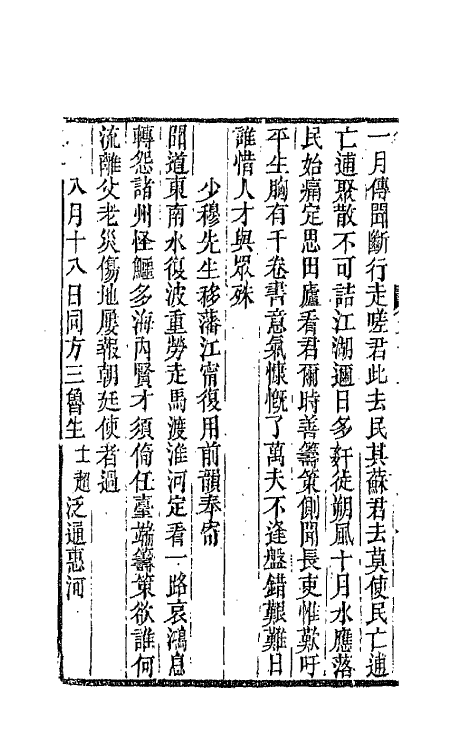 一月傳聞斷行走嗟君此去民其蘇君去莫使民亡逋
亡逋聚散不可詰江湖邇日多奸徒朔風十月水應落
民始痛定思田廬看君爾時善籌策側聞長吏惟歎吁
平生胸有千卷書意氣慷慨了萬夫不逢盤錯艱難日
誰惜人才與眾殊
少穆先生移藩江甯復用前韻奉寄
聞道東南水復波重勞走馬渡淮河定看一路哀鴻息
轉怨諸州怪鱷多海內賢才須倚任臺端籌策欲誰何
流離父老災傷地屢報朝廷使者過
八月十八日同方三魯生士超泛通惠河